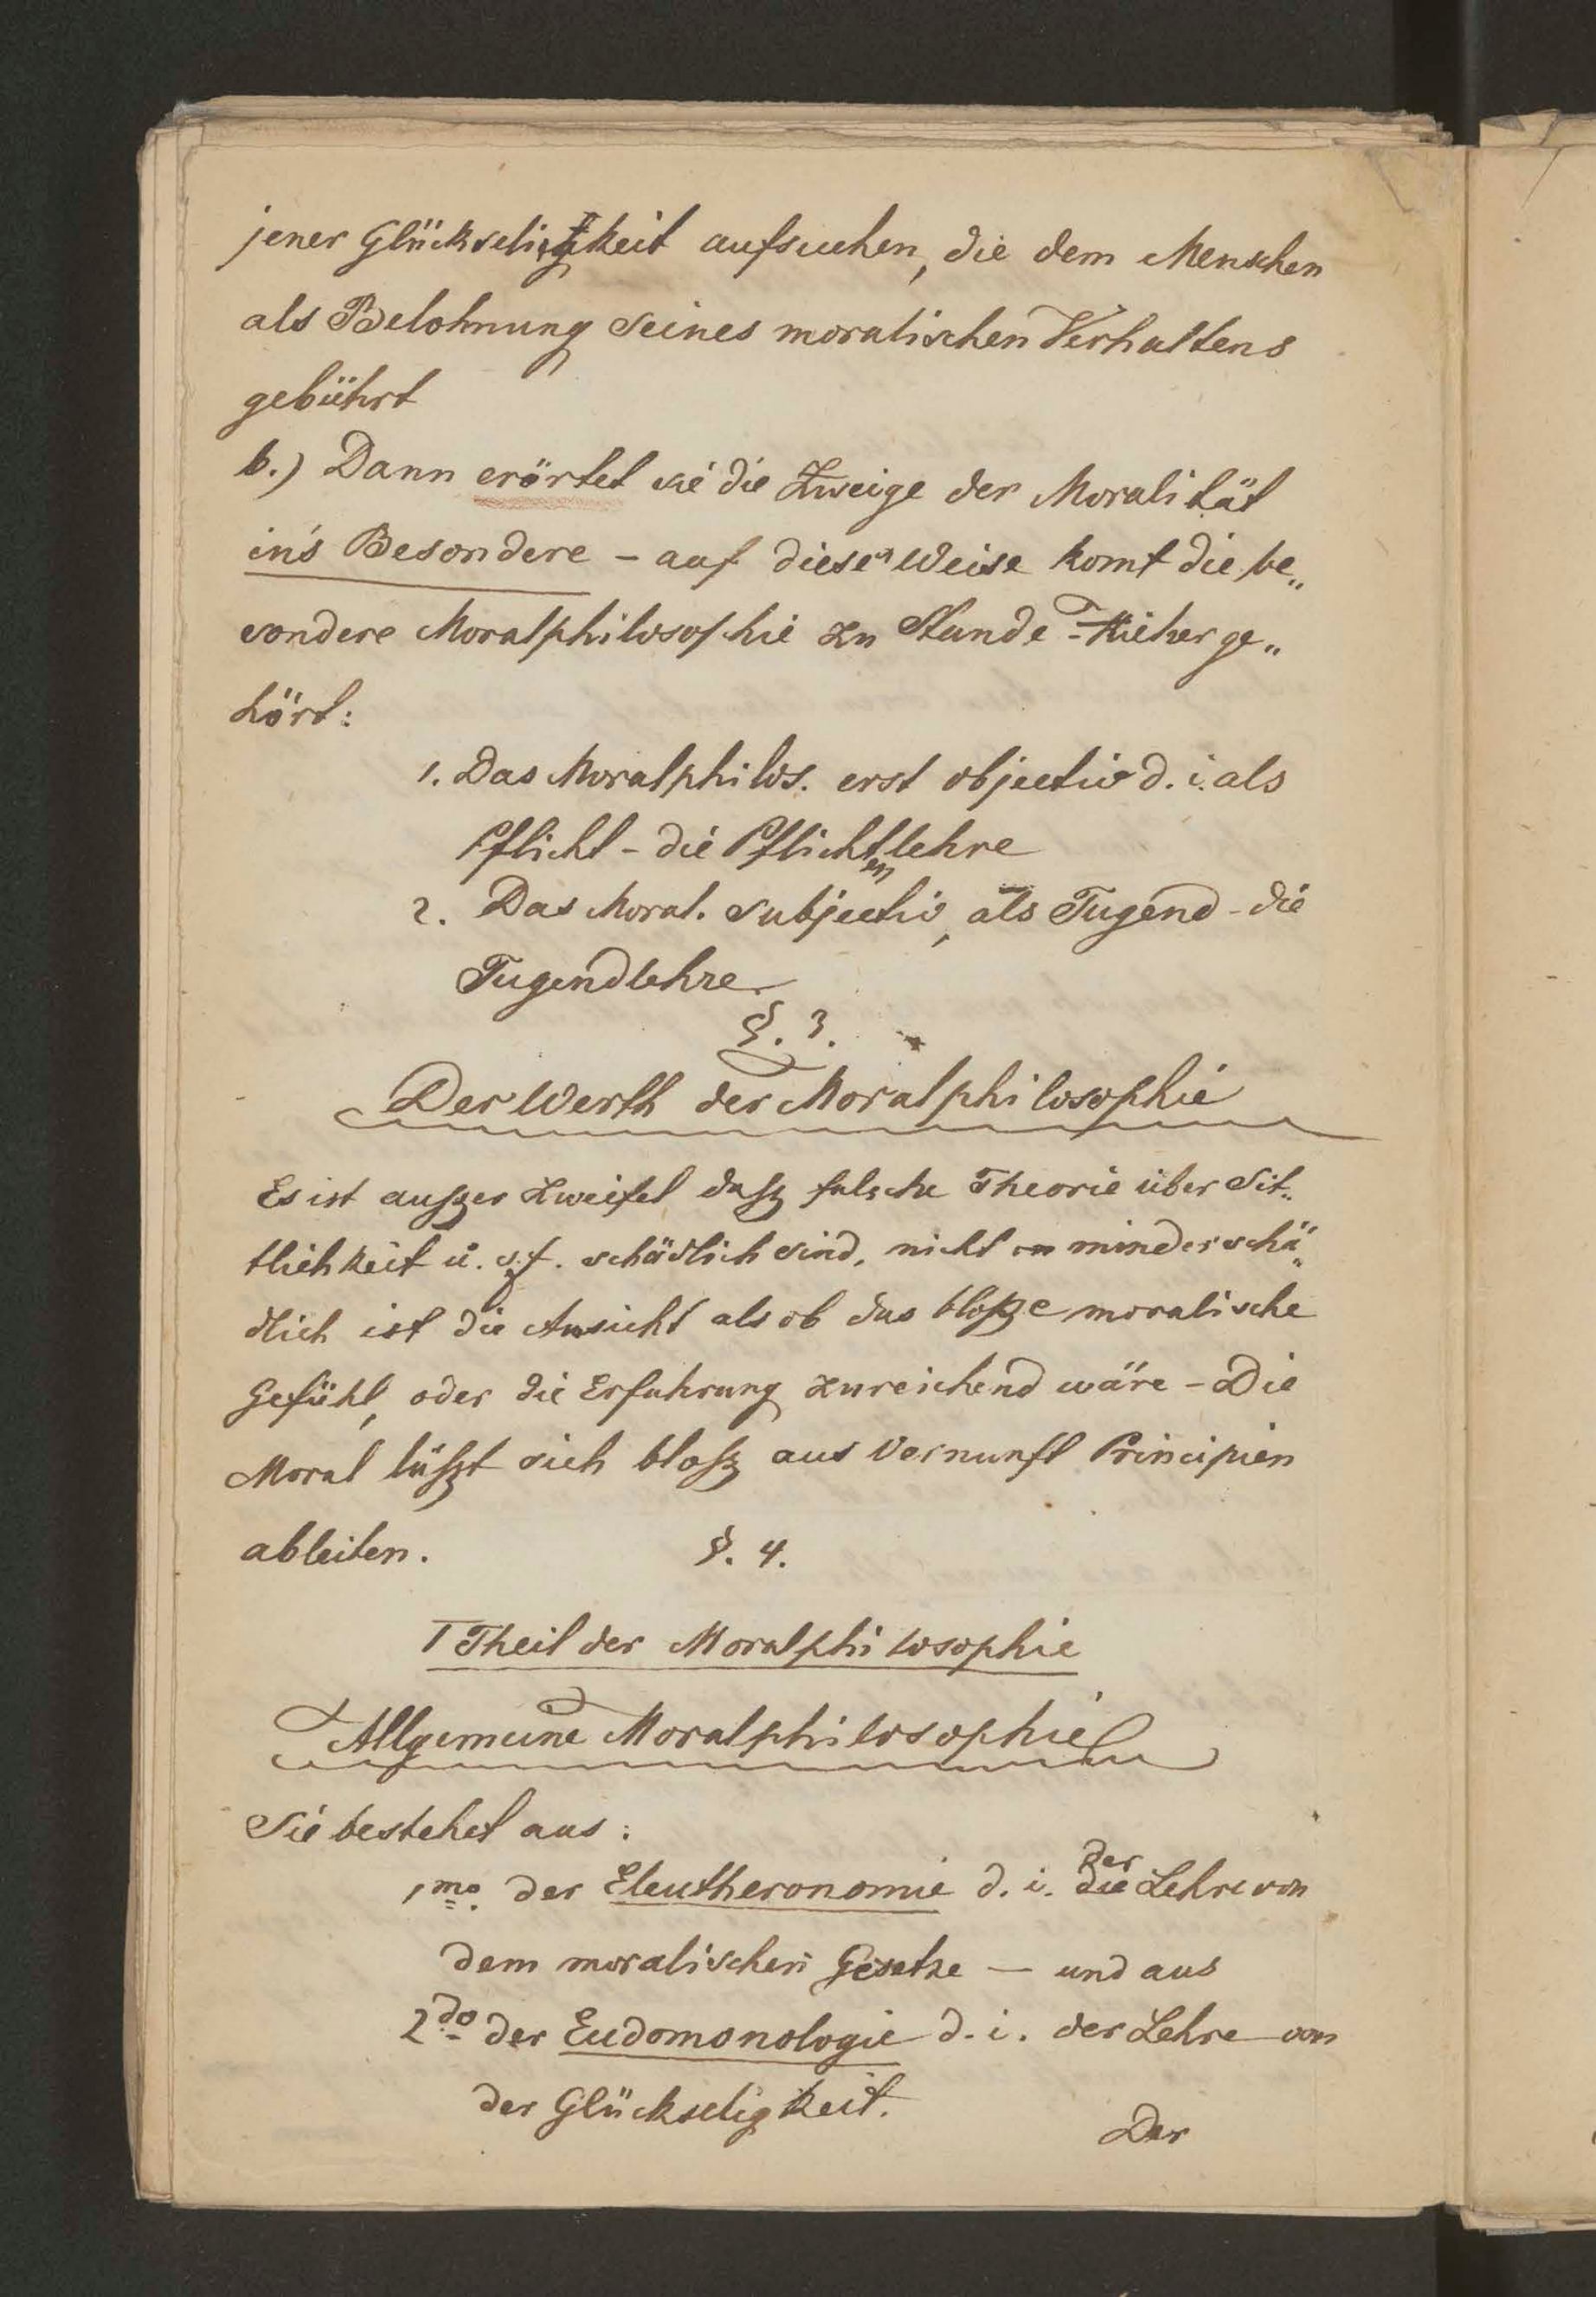 jener Glückseligkeit aufsuchen, die dem Menschen
als Belohnung seines moralischen Verhaltens
gebührt
b.) Dann erörtet sie die Zweige der Moralität
in's Besondere - auf diese Weise komt die be„
sondere Moralphilosophie zu Stande - Hieher ge„
hört:
1. Das Moralphilos. erst objectiv d. i. als
Pflicht - die Pflichtenlehre
2. Das Moral. subjectiv, als Tugend - die
Tugendlehre
§. 3.
Der Werth der Moralphilosophie
Es ist außer Zweifel daß falsche Theorie über Sit„
tlichkeit u. s. f. schädlich sind, nicht minder schä„
dlich ist die Ansicht als ob das bloße moralische
Gefühl, oder die Erfahrung zureichend wäre - Die
Moral läßt sich bloß aus Vernunft Principien
ableiten.
§. 4.
I Theil der Moralphilosophie
Allgemeine Moralphilosophie
Sie bestehet aus:
1mo. der Eleutheronomie d. i. der Lehre von
dem moralischen Gesetze — und aus
2do der Eudomonologie d. i. der Lehre von
der Glückseligkeit.
Der